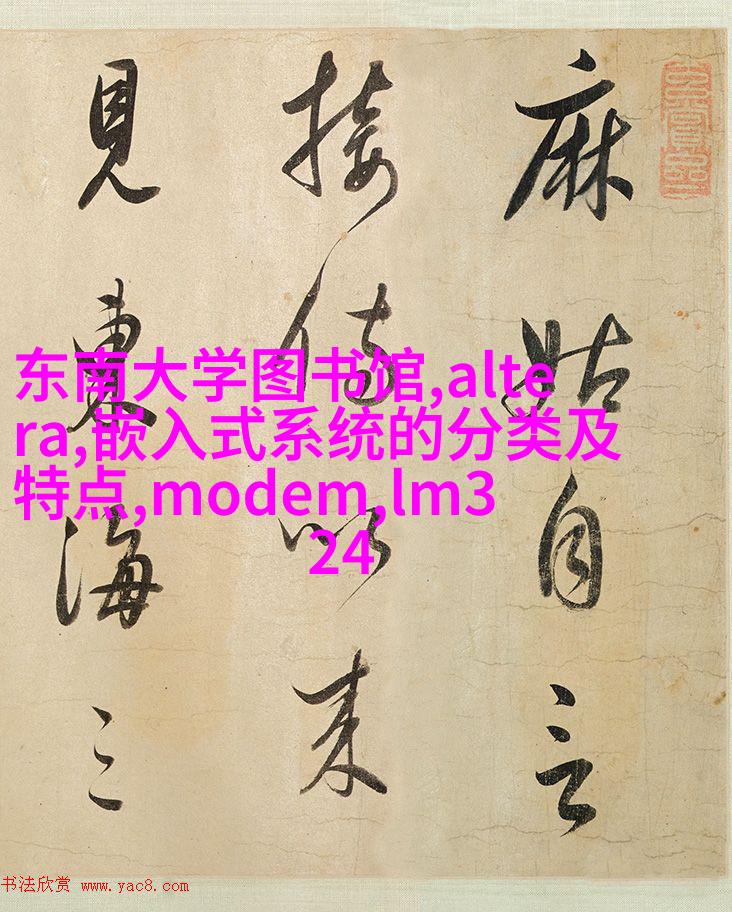 麻姑自言
接侍以来
見東海三
东南大学图书馆,alte
ra,嵌入式系统的分类及
特点,modem,lm3
24
书法欣赏 www.yac8.com